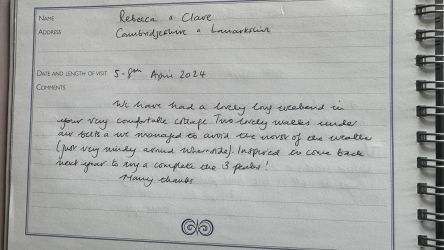 NAME Rebecca & Clare
ADDRESS Cambridgeshire & Lanarkshire
DATE AND LENGTH OF VISIT 5-8th April 2024
COMMENTS
We have had a lovely long weekend in
your very comfortable cottage. Two lovely walks under
our belts & we managed to avoid the worst of the weather
(just very windy around Whernside). Inspired to come back
next year to try & complete the 3 peaks!
Many thanks